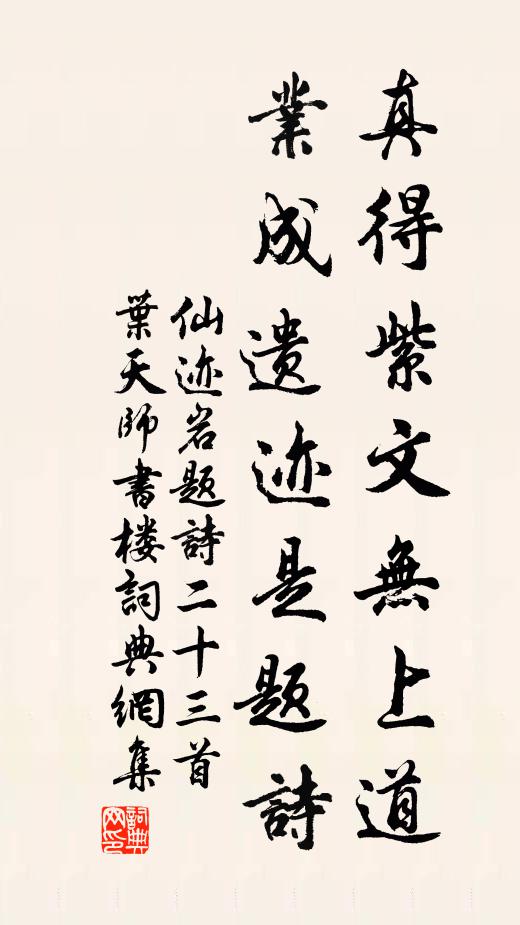 真得紫文無上道
業成遗迹是题詩
仙迹岩题詩二十三首
葉天師書楼詞典網集
詞典网印